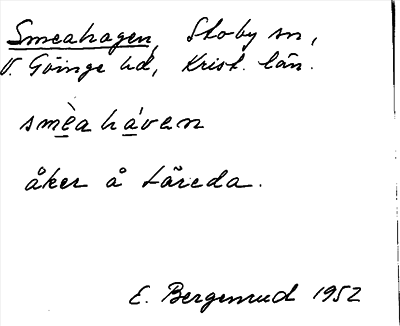 Smeahagen, Stoby sn,
V. Göinge hd, Krist. län.
smèa háven
åker å Läreda.
E. Bergenrud 1952